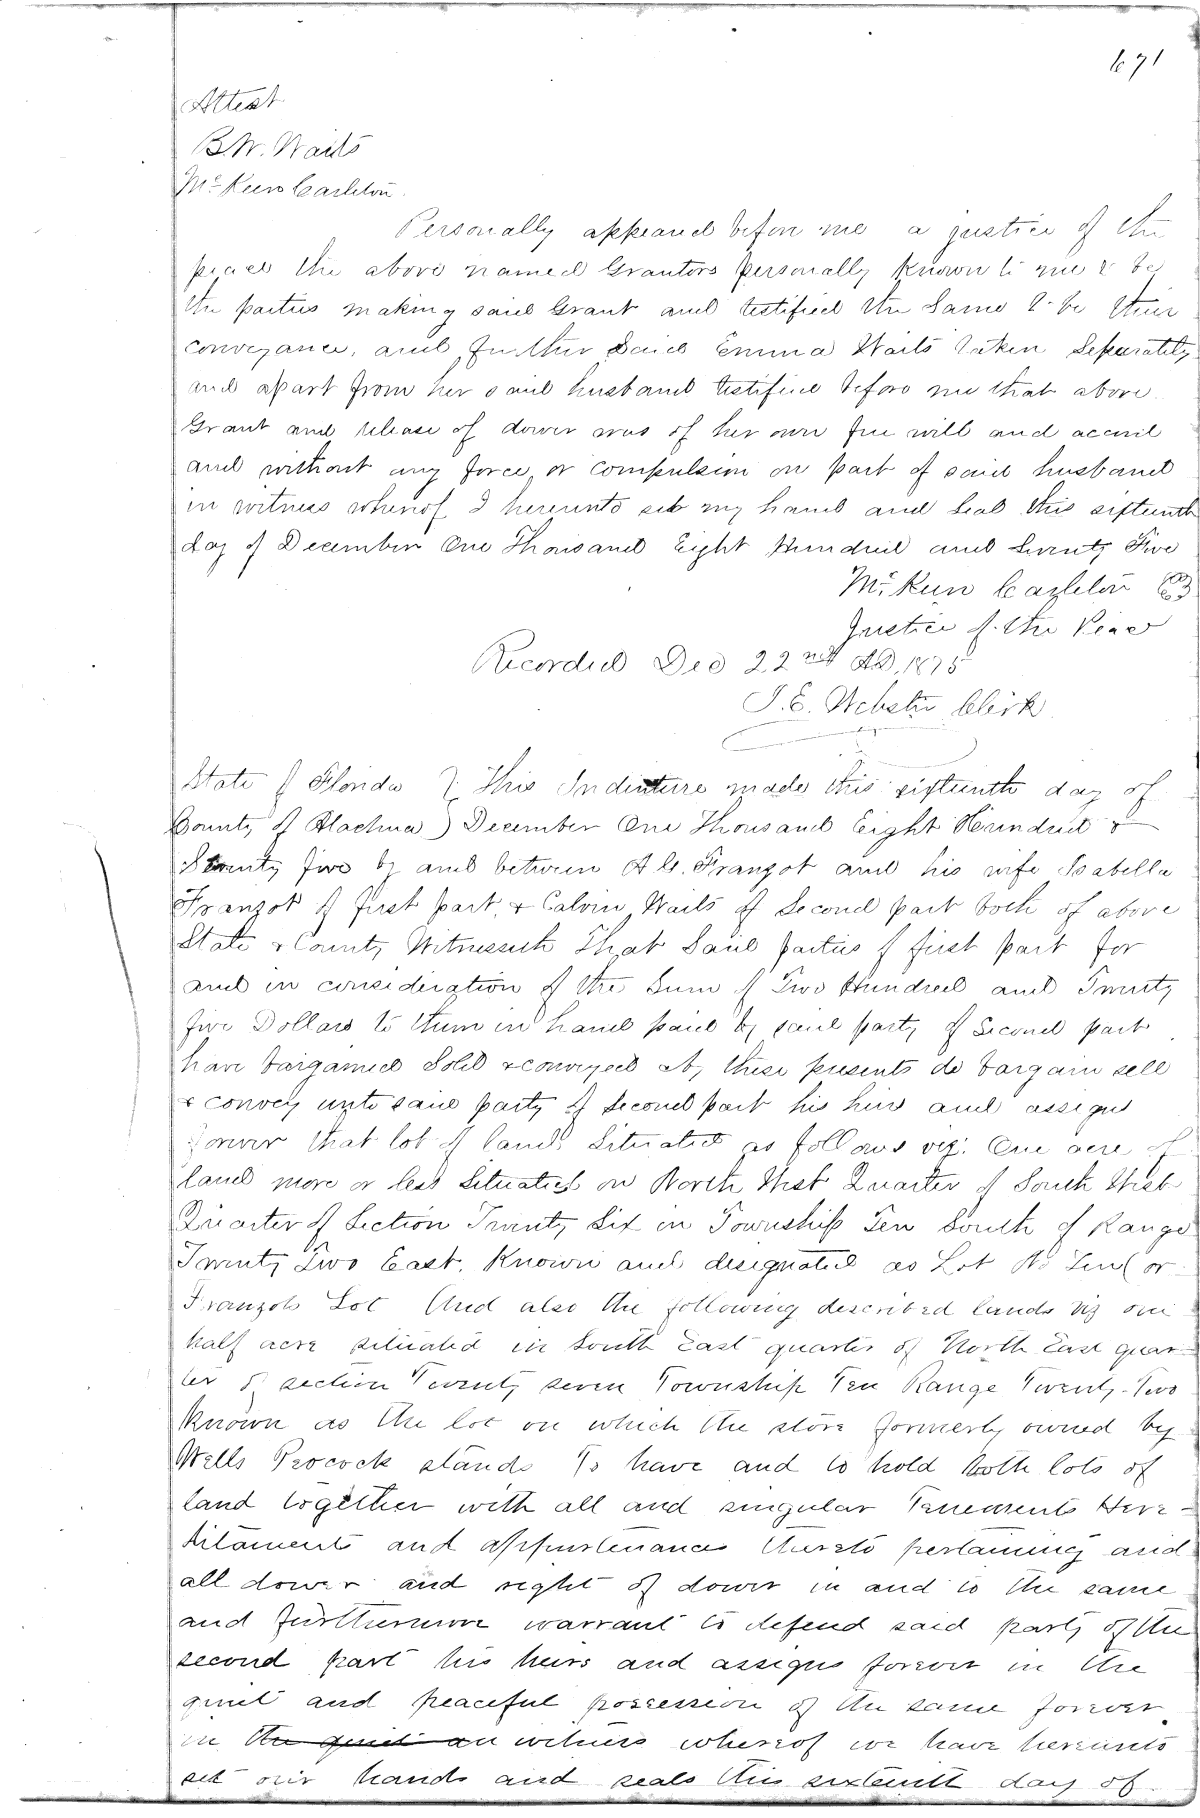 671
Attest
B.W. Waits
McKeen Carlton
Personally appeared before me a justice of the
peace the above named Grantors personally known to me to be
the parties making said Grant and testified the Same to be their
conveyance, and further Said Emma Waits taken Seperately
and apart from her said husband testified before me that above
Grant and release of dower was of her own free will and accord
and without any force or compulsion on part of said husband
in witness whereof I hereunto set my hand and Seal this sixteenth
day of December One Thousand Eight Hundred and Seventy Five
McKeen Carlton
Justice of the Peace
Recorded Dec 22nd AD. 1875
J.E. Webster Clerk
State of Florida } This Indenture made this sixteenth day of
County of Alachua ) December One Thousand Eight Hundred &
Seventy five by and between A.G. Franzot and his wife Isabella
Franzot of first part, & Calvin Waits of Second part both of above
State & County Witnesseth That Said parties of first part for
and in consideration of the Sum of Two Hundred and Twenty
five Dollars to them in hand paid by said party of Second part
have bargained Sold & conveyed & by these presents do bargain sell
& convey unto said party of Second part his heirs and assigns
forever that lot of land Situated as follows viz: One acre of
land more or less Situated on North West Quarter of South West
Quarter of Section Twenty Six in Township Ten South of Range
Twenty Two East. Known and designated as Lot No Ten (or
Franzots Lot And also the following described lands viz one
half acre situated in South East quarter of North East quar-
ter of section Twenty seven Township Ten Range Twenty-Two
known as the lot on which the store formerly owned by
Wells Peocock stands To have and to hold both lots of
land together with all and singular Tenements Here-
ditaments and appurtenances thereto pertaining and
all dower and right of dower in and to the same
and furthermore warrant to defend said party of the
second part his heirs and assigns forever in the
quiet and peaceful possession of the same forever.
in the quiet an witness whereof we have hereunto
set our hands and seals this sixteenth day of